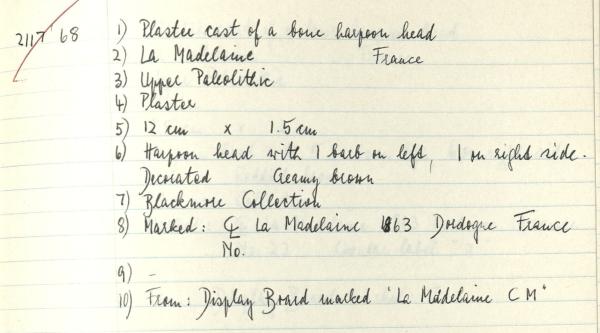 2117 '68 1) Plaster cast of a bone harpoon head
2) La Madelaine France
3) Upper Paleolithic
4) Plaster
5) 12 cm x 1.5 cm
6) Harpoon head with 1 barb on left, 1 on right side.
Decorated Creamy brown
7) Blackmore Collection
8) Marked: La Madelaine 1863 Dordogne France
No.
9) -
10) From: Display Board marked 'La Madelaine CM'